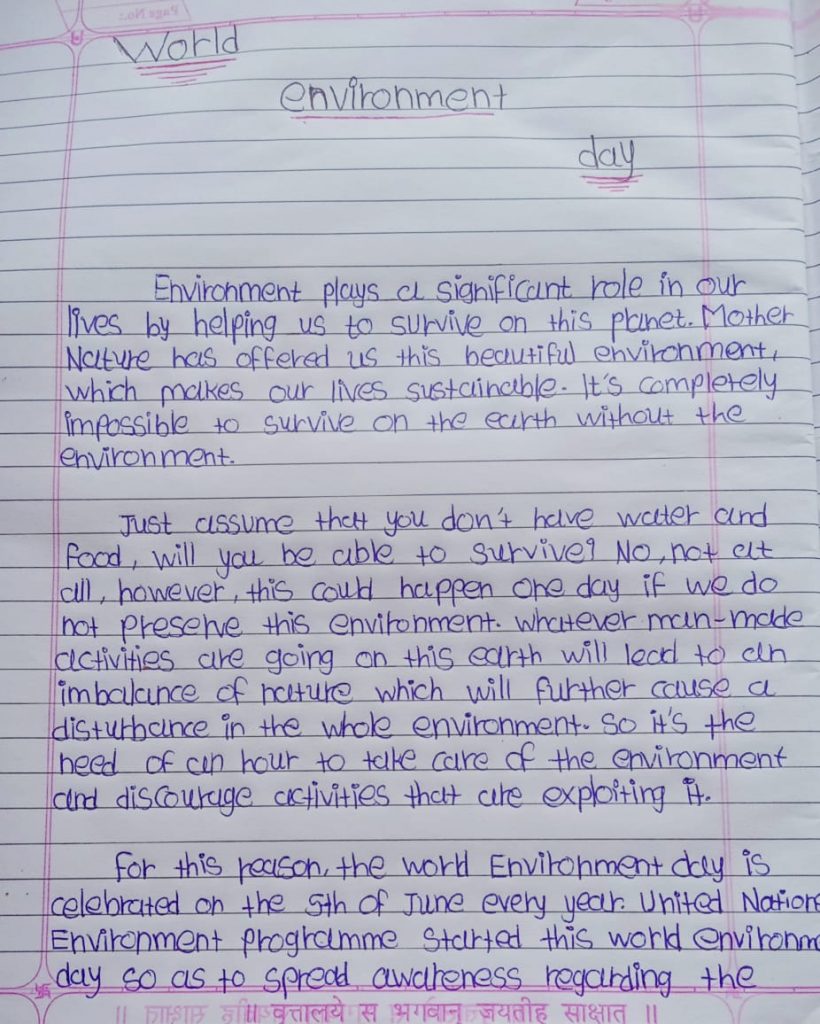 Page No.:
World
environment
day
Environment plays a significant role in our
lives by helping us to survive on this planet. Mother
Nature has offered us this beautiful environment,
which makes our lives sustainable. It's completely
impossible to survive on the earth without the
environment.
Just assume that you don't have water and
food, will you be able to survive? No, not at
all, however, this could happen one day if we do
not preserve this environment. whatever man-made
activities are going on this earth will lead to an
imbalance of nature which will further cause a
disturbance in the whole environment. so it's the
need of an hour to take care of the environment
and discourage activities that are exploiting it.
for this reason, the world Environment day is
celebrated on the 5th of June every year. United Nation
Environment programme started this world environm
day so as to spread awareness regarding the
वृत्तालये स भगवान् जयतीह साक्षात् ||